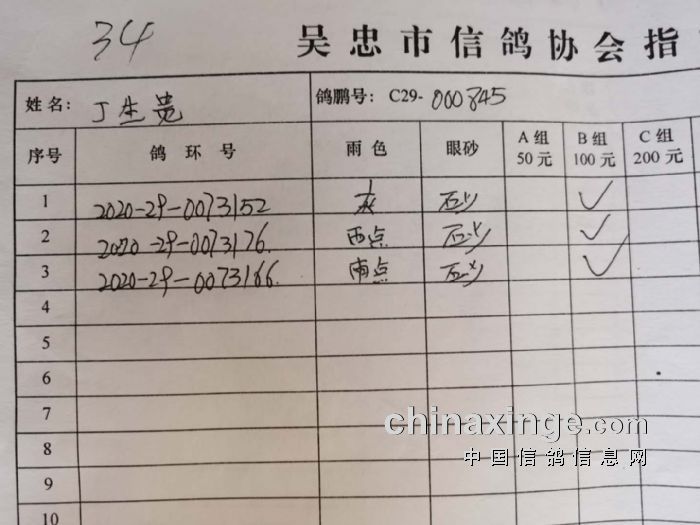 34
吴忠市信鸽协会指
姓名: 丁生贵 鸽鹏号: C29-000845
序号 鸽环号 雨色 眼砂 A组 50元 B组 100元 C组 200元
1 2020-29-0073152 灰 石少 ✓
2 2020-29-0073176. 西点 石少 ✓
3 2020-29-0073166. 雨点 石少 ✓
4
5
6
7
8
9
10
chinaxinge.com
中国信鸽信息网